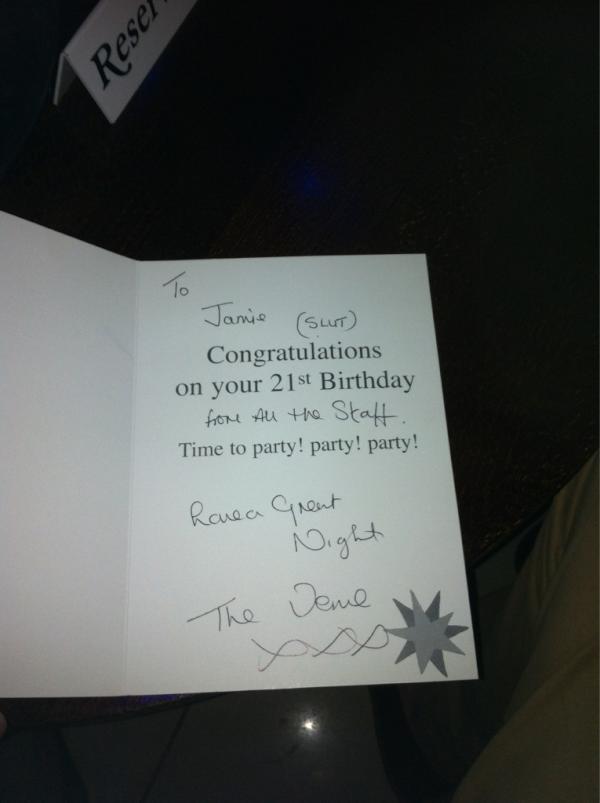 Reserv
To
Jamie (SLUT)
Congratulations
on your 21st Birthday
from All the Staff.
Time to party! party! party!
Have a Great
Night
The
xxx